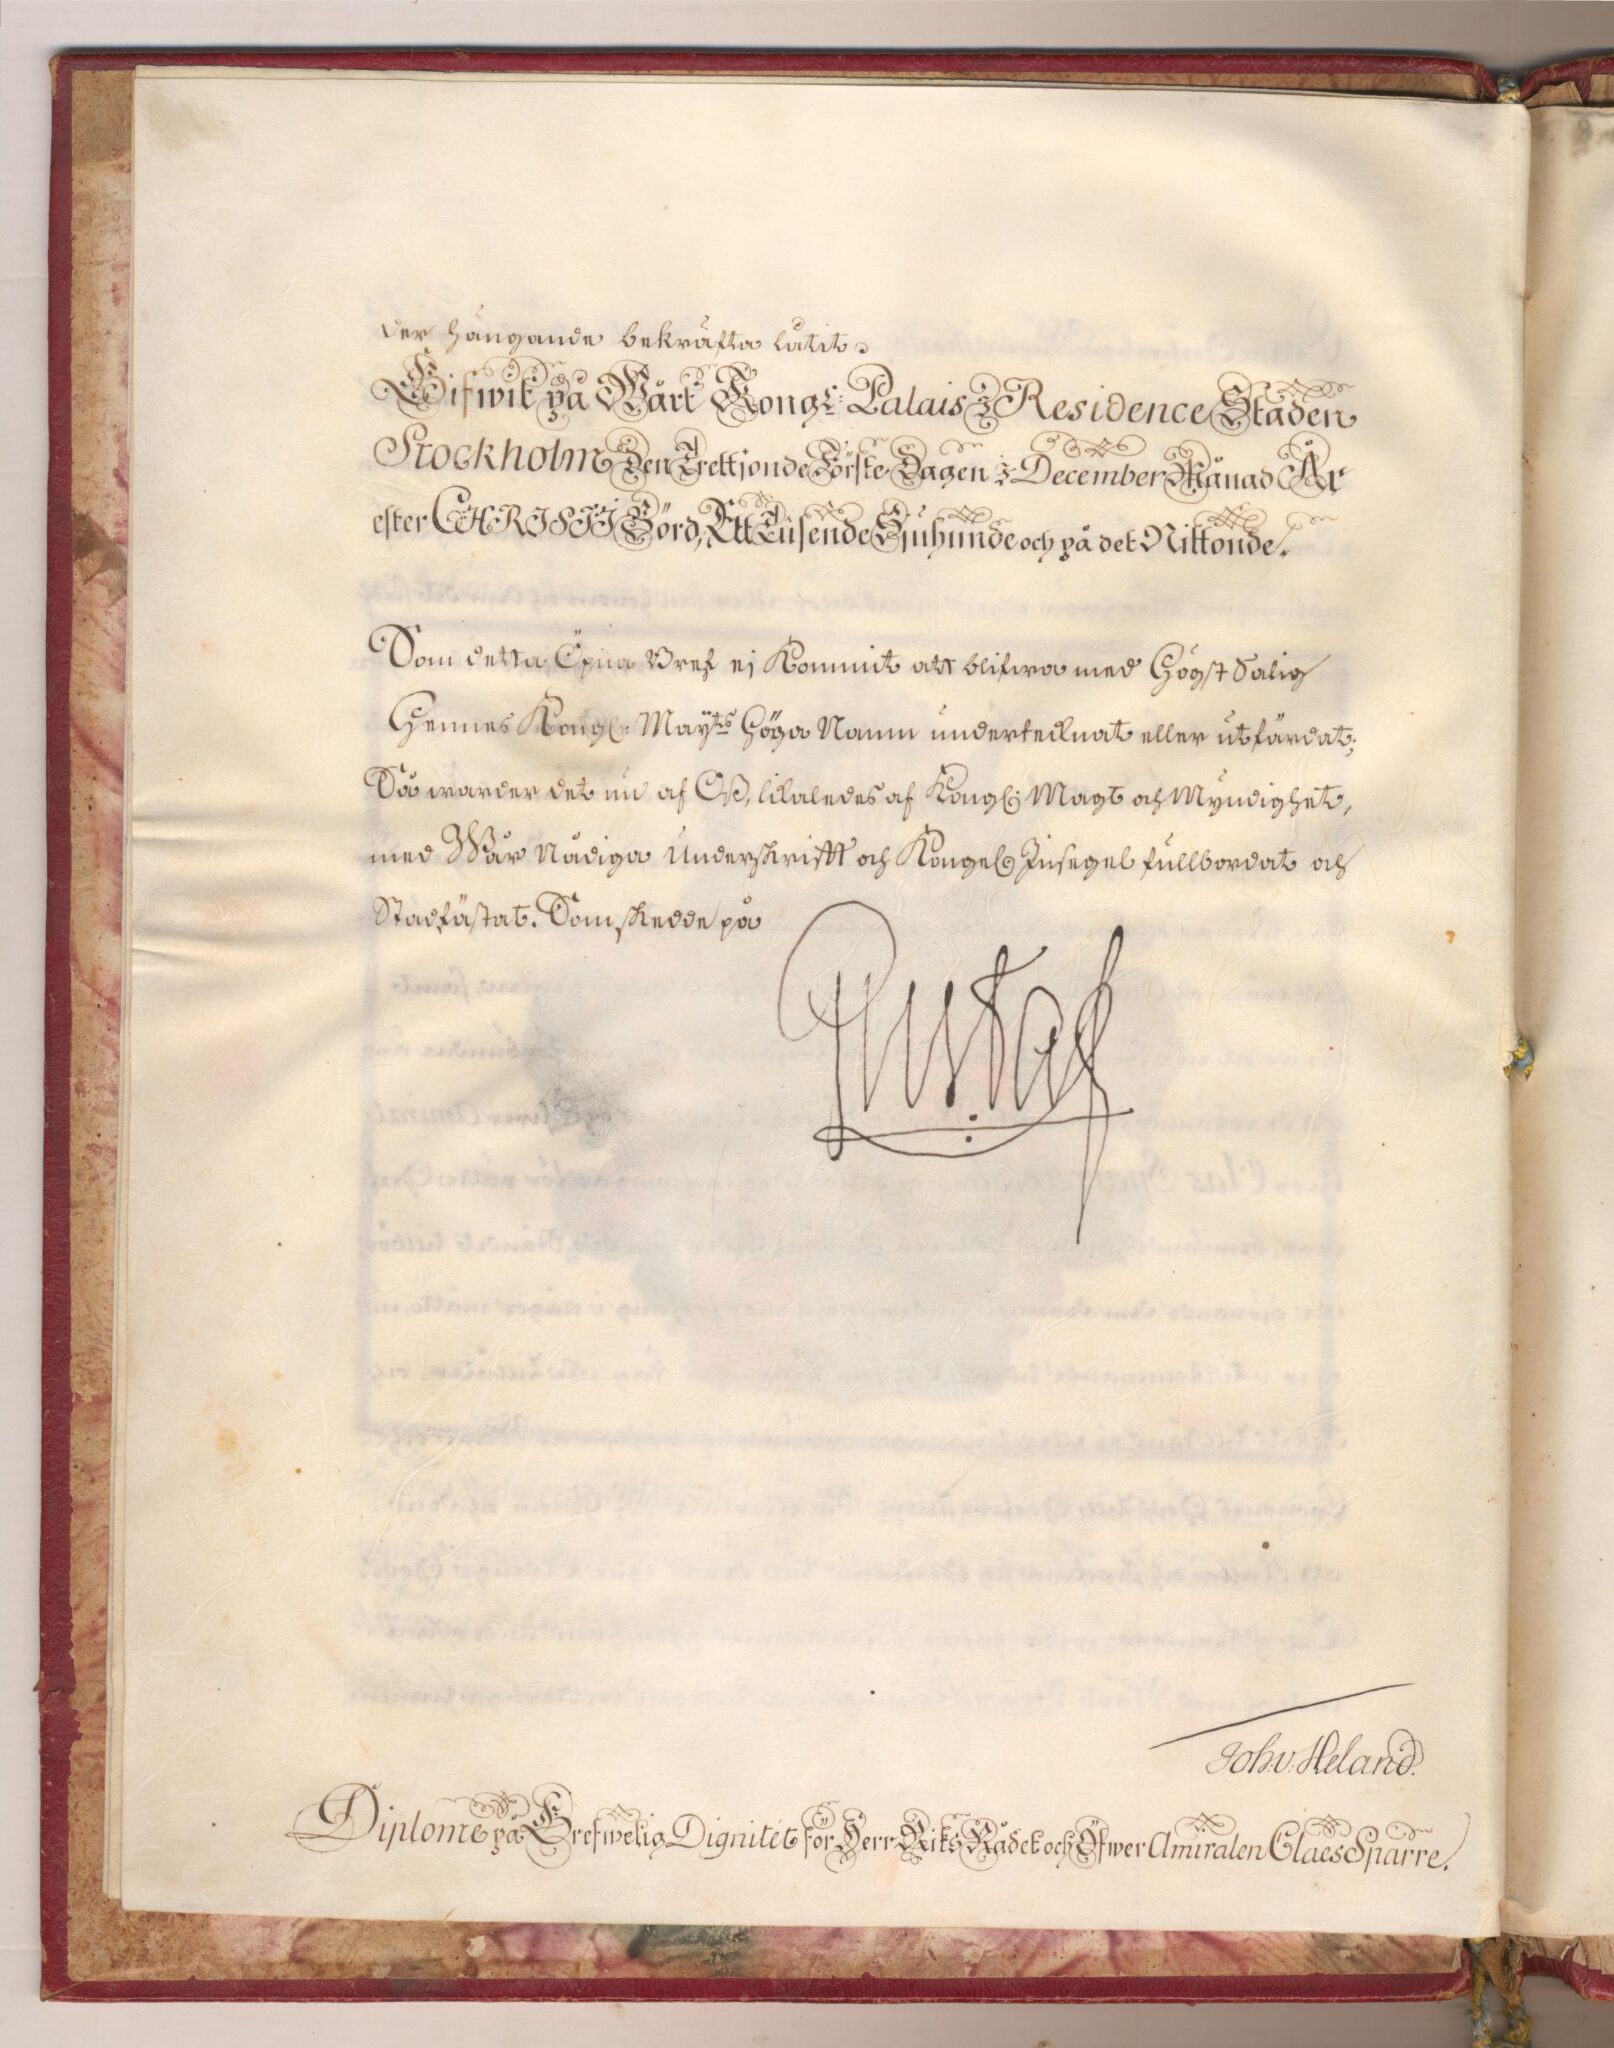 der hängande bekräfta låtit.
Gifwit på Wårt Kongl: Palais i Residence Staden
Stockholm Den Trettjonde Förste Dagen i December Månad År
efter CHRISTI Börd, Ett Tusende Sjuhunde och på det Nittonde.
Som detta Öpna Bref ej Kommit att blifwa med Högst Salig
Hennes Kongl: Mayts Höga Namn underteknat eller utfärdat;
Så warder det nu af Oß, likaledes af Kongl: Magt och Myndighet,
med Wår Nådiga Underskrifft och Kongel: Insegel fullbordat och
Stadfästat. Som skedde på
Gustaf
Joh: v: Heland.
Diplome på Grefwelig Dignitet för Herr Riks Rådet och Öfwer Amiralen Claes Sparre.